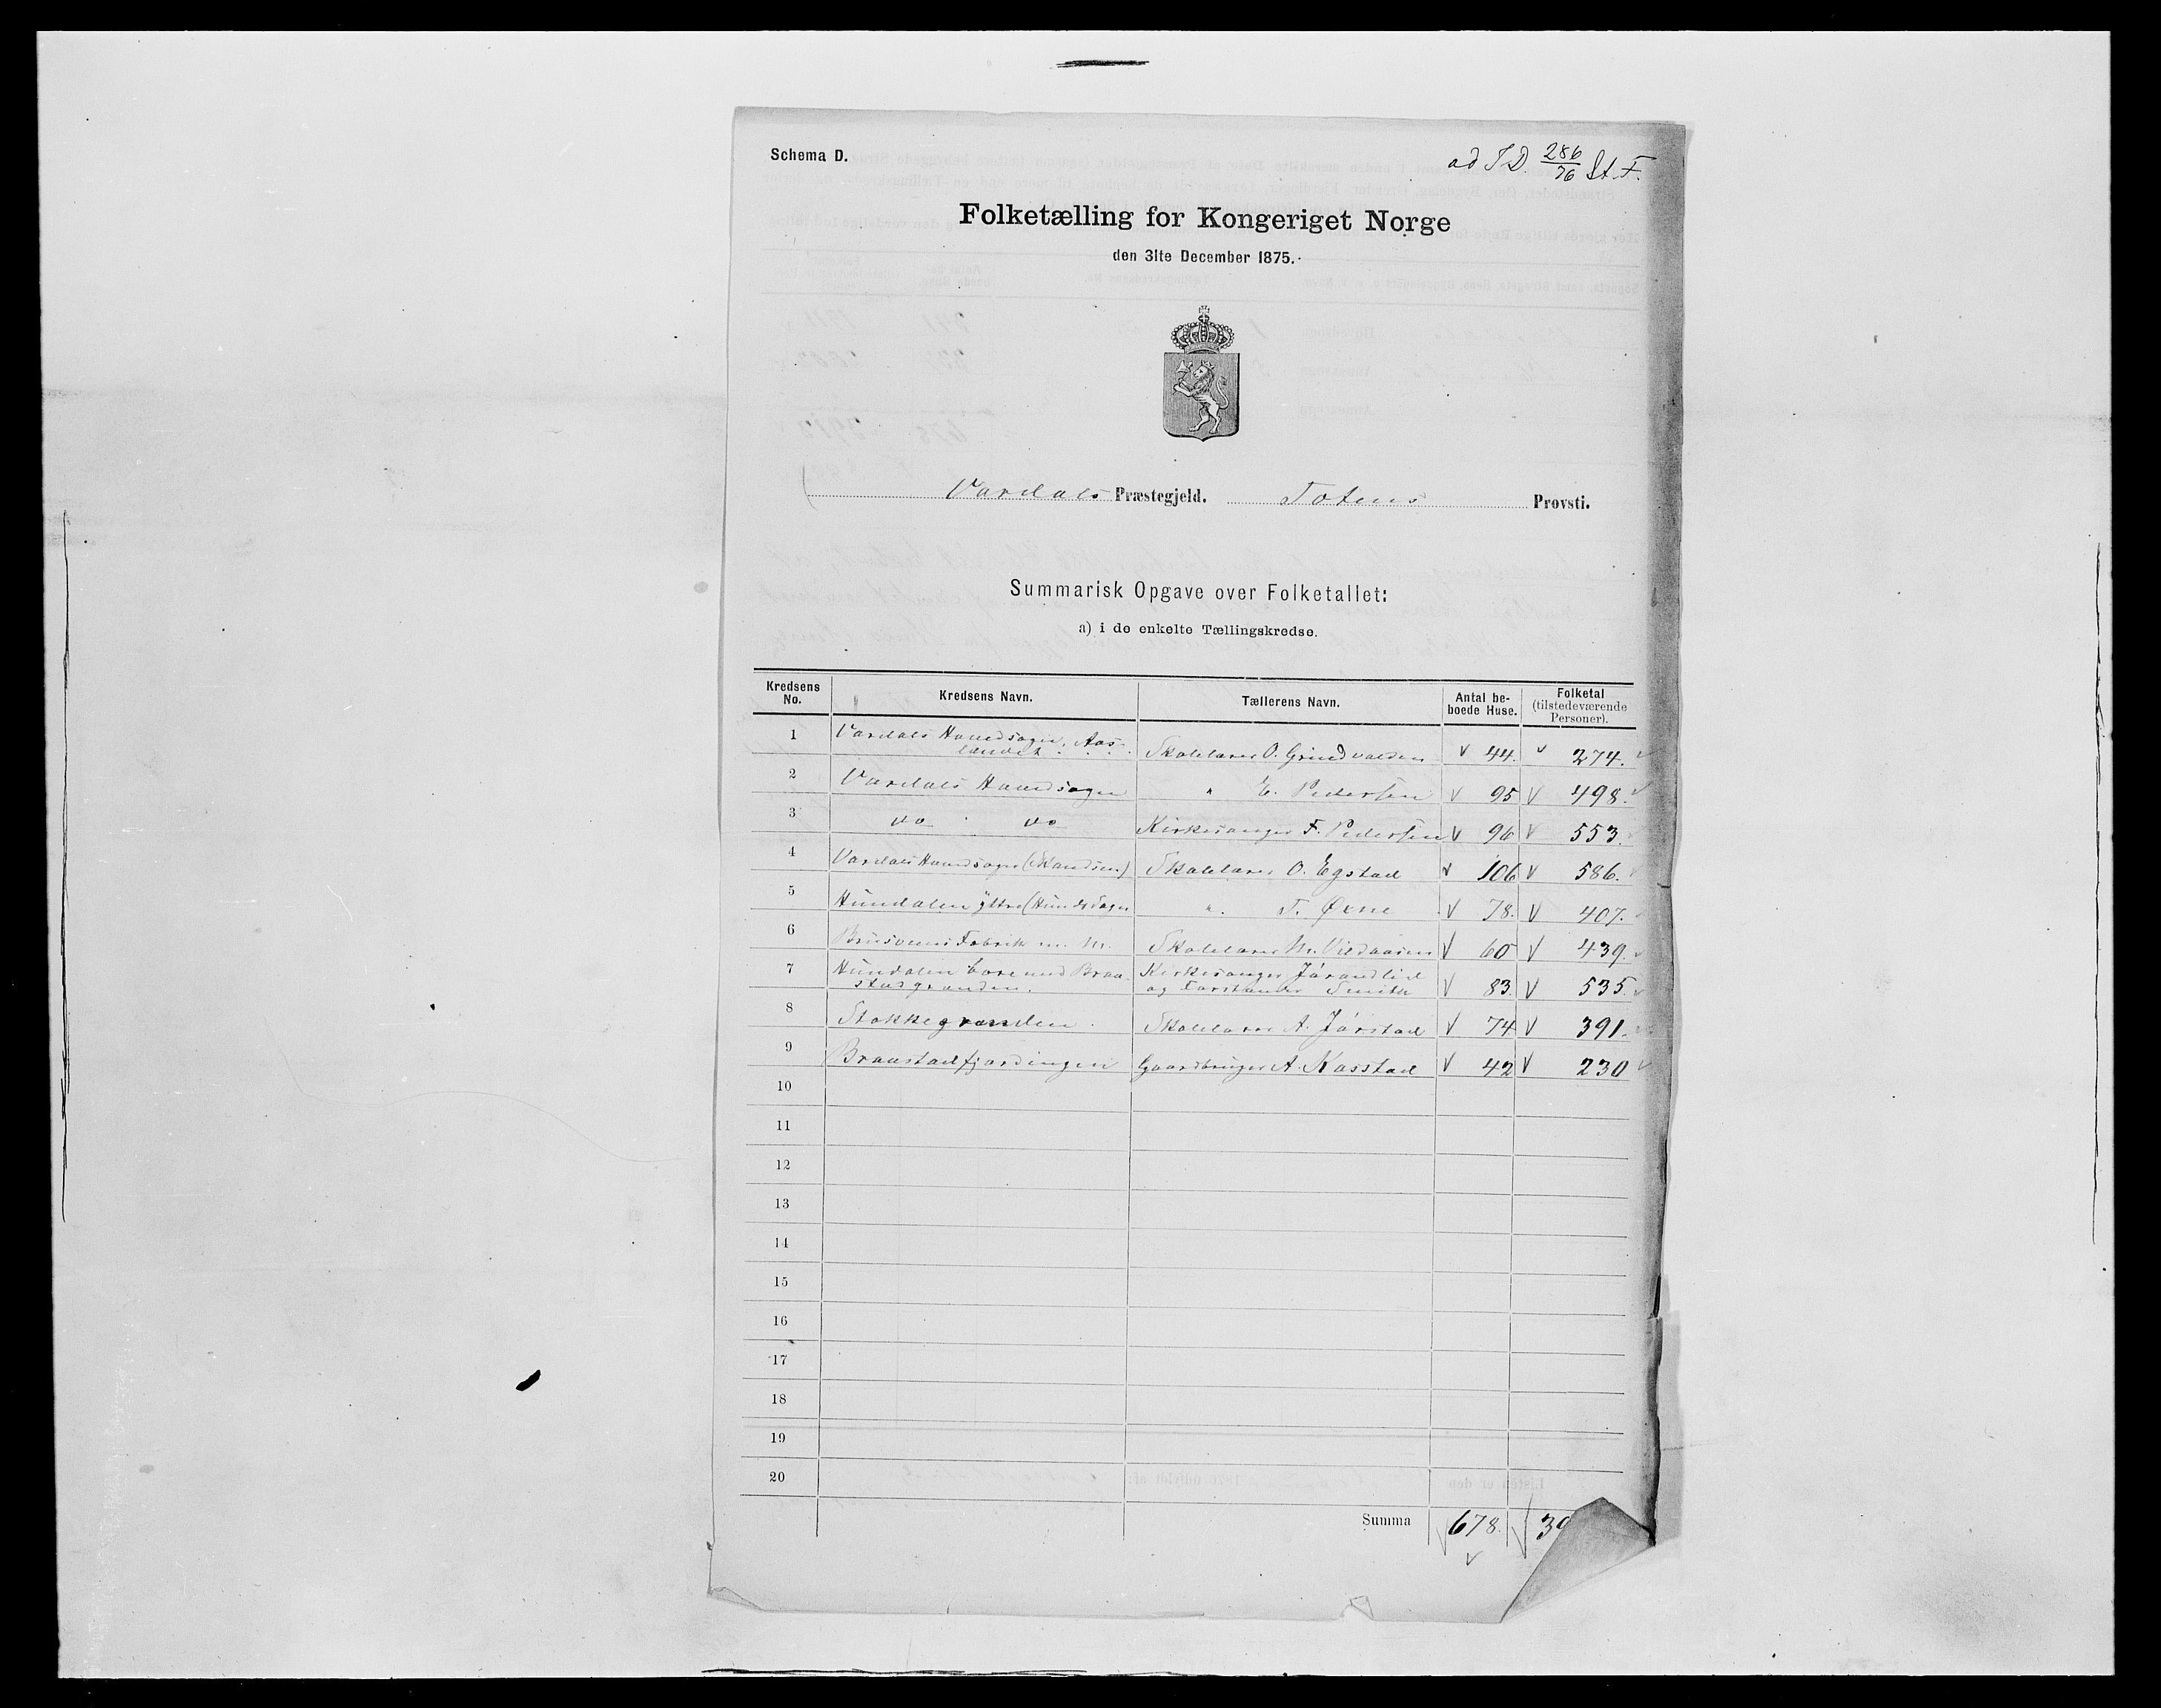 Schema D.
ad J.D. 286/76 St. F.
Folketælling for Kongeriget Norge
den 31te December 1875.
Vardals Præstegjeld. Totens Provsti.
Summarisk Opgave over Folketallet:
a) i de enkelte Tællingskredse.
Kredsens No. Kredsens Navn. Tællerens Navn. Antal beboede Huse. Folketal (tilstedeværende Personer).
1 Vardals Hovedsogn, Aaslandet Skolelærer O. Grindvolden 44. 274.
2 Vardals Hovedsogn " E. Pedersen 95 498.
3 do do Kirkesanger F. Pedersen 96 553.
4 Vardals Hovedsogn (Skandsen) Skolelærer O. Egstad 106 586.
5 Hundalen yttre (Hunds Sogn " T. Øvne 78. 407.
6 Brusveens Fabrik m. m. Skolelærer M. 60 439.
7 Hundalen bore med Braastadgranden. Kirkesanger Járandlid og Forstander Smith 83. 535.
8 Stokkegranden Skolelærer A. Járstad 74 391.
9 Braastadfjardingen Gaardbruger A. Kasstad 42 230
10
11
12
13
14
15
16
17
18
19
20
Summa 678. 39